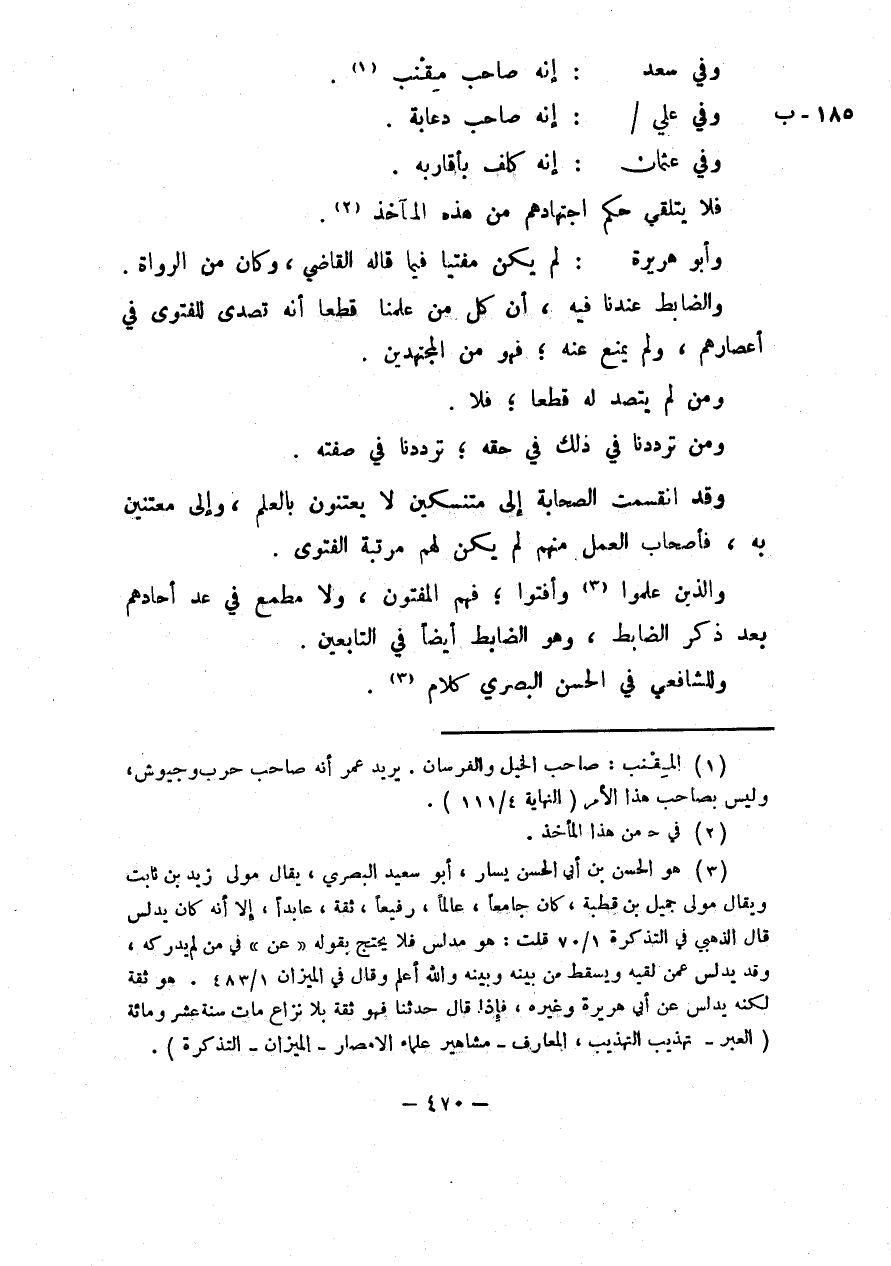 وفي سعد : إنه صاحب مِقْنب (١) .
١٨٥ - ب وفي علي / : إنه صاحب دعابة .
وفي عثمان : إنه كلف بأقاربه .
فلا يتلقي حكم اجتهادهم من هذه المآخذ (٢) .
وأبو هريرة : لم يكن مفتيا فيما قاله القاضي ، وكان من الرواة .
والضابط عندنا فيه ، أن كل من علمنا قطعا أنه تصدى للفتوى في
أعصارهم ، ولم يمنع عنه ؛ فهو من المجتهدين .
ومن لم يتصد له قطعا ؛ فلا .
ومن ترددنا في ذلك في حقه ؛ ترددنا في صفته .
وقد انقسمت الصحابة إلى متنسكين لا يعتنون بالعلم ، وإلى معتنين
به ، فأصحاب العمل منهم لم يكن لهم مرتبة الفتوى .
والذين علموا (٣) وأفتوا ؛ فهم المفتون ، ولا مطمع في عد أحادهم
بعد ذكر الضابط ، وهو الضابط أيضاً في التابعين .
وللشافعي في الحسن البصري كلام (٣) .
(١) المِقْنب : صاحب الخيل والفرسان . يريد عمر أنه صاحب حرب وجيوش ،
وليس بصاحب هذا الأمر ( النهاية ٤/١١١ ) .
(٢) في حـ من هذا المأخذ .
(٣) هو الحسن بن أبي الحسن يسار ، أبو سعيد البصري ، يقال مولى زيد بن ثابت
ويقال مولى جميل بن قطبة ، كان جامعاً ، عالماً ، رفيعاً ، ثقة ، عابداً ، إلا أنه كان يدلس
قال الذهبي في التذكرة ١/٧٠ قلت : هو مدلس فلا يحتج بقوله « عن » في من لم يدركه ،
وقد يدلس عمن لقيه ويسقط من بينه وبينه والله أعلم وقال في الميزان ١/٤٨٣ . هو ثقة
لكنه يدلس عن أبي هريرة وغيره ، فإذا قال حدثنا فهو ثقة بلا نزاع مات سنة عشر ومائة
( العبر ـ تهذيب التهذيب ، المعارف ـ مشاهير علماء الامصار ـ الميزان ـ التذكرة ) .
— ٤٧٠ —